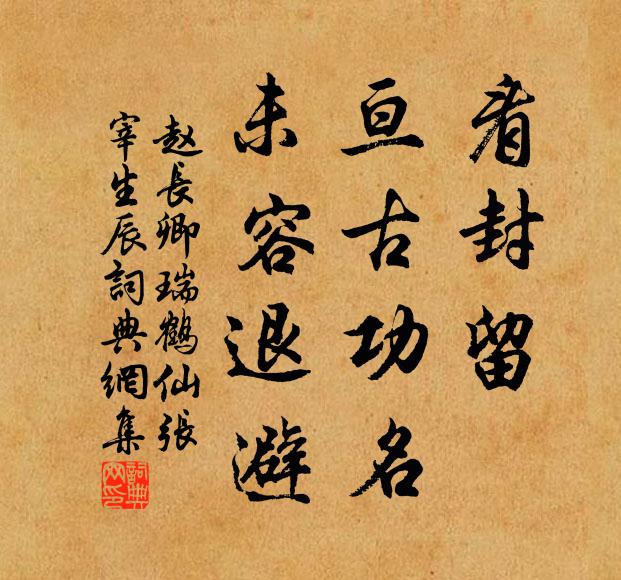 看封留
亘古功名
未容退避
赵長卿瑞鶴仙張
宰生辰詞典網集
詞典
网印